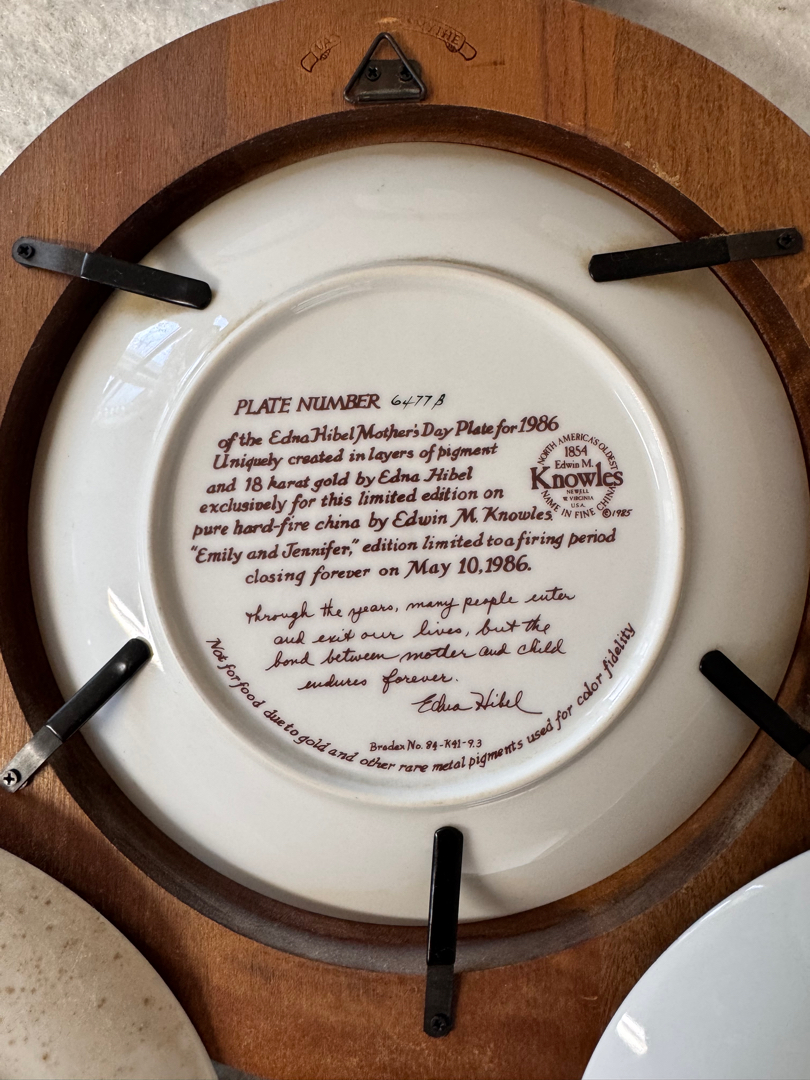 PLATE NUMBER 6477B
of the Edna Hibel Mother's Day Plate for 1986
Uniquely created in layers of pigment
and 18 karat gold by Edna Hibel
exclusively for this limited edition on
pure hard-fire china by Edwin M. Knowles.
"Emily and Jennifer," edition limited to a firing period
closing forever on May 10, 1986.
NORTH AMERICA'S OLDEST
1854
Edwin M.
Knowles
NEWELL
W. VIRGINIA
U.S.A.
NAME IN FINE CHINA
©1985
Through the years, many people enter
and exit our lives, but the
bond between mother and child
endures forever.
Edna Hibel
Bradex No. 84-K41-9.3
Not for food due to gold and other rare metal pigments used for color fidelity